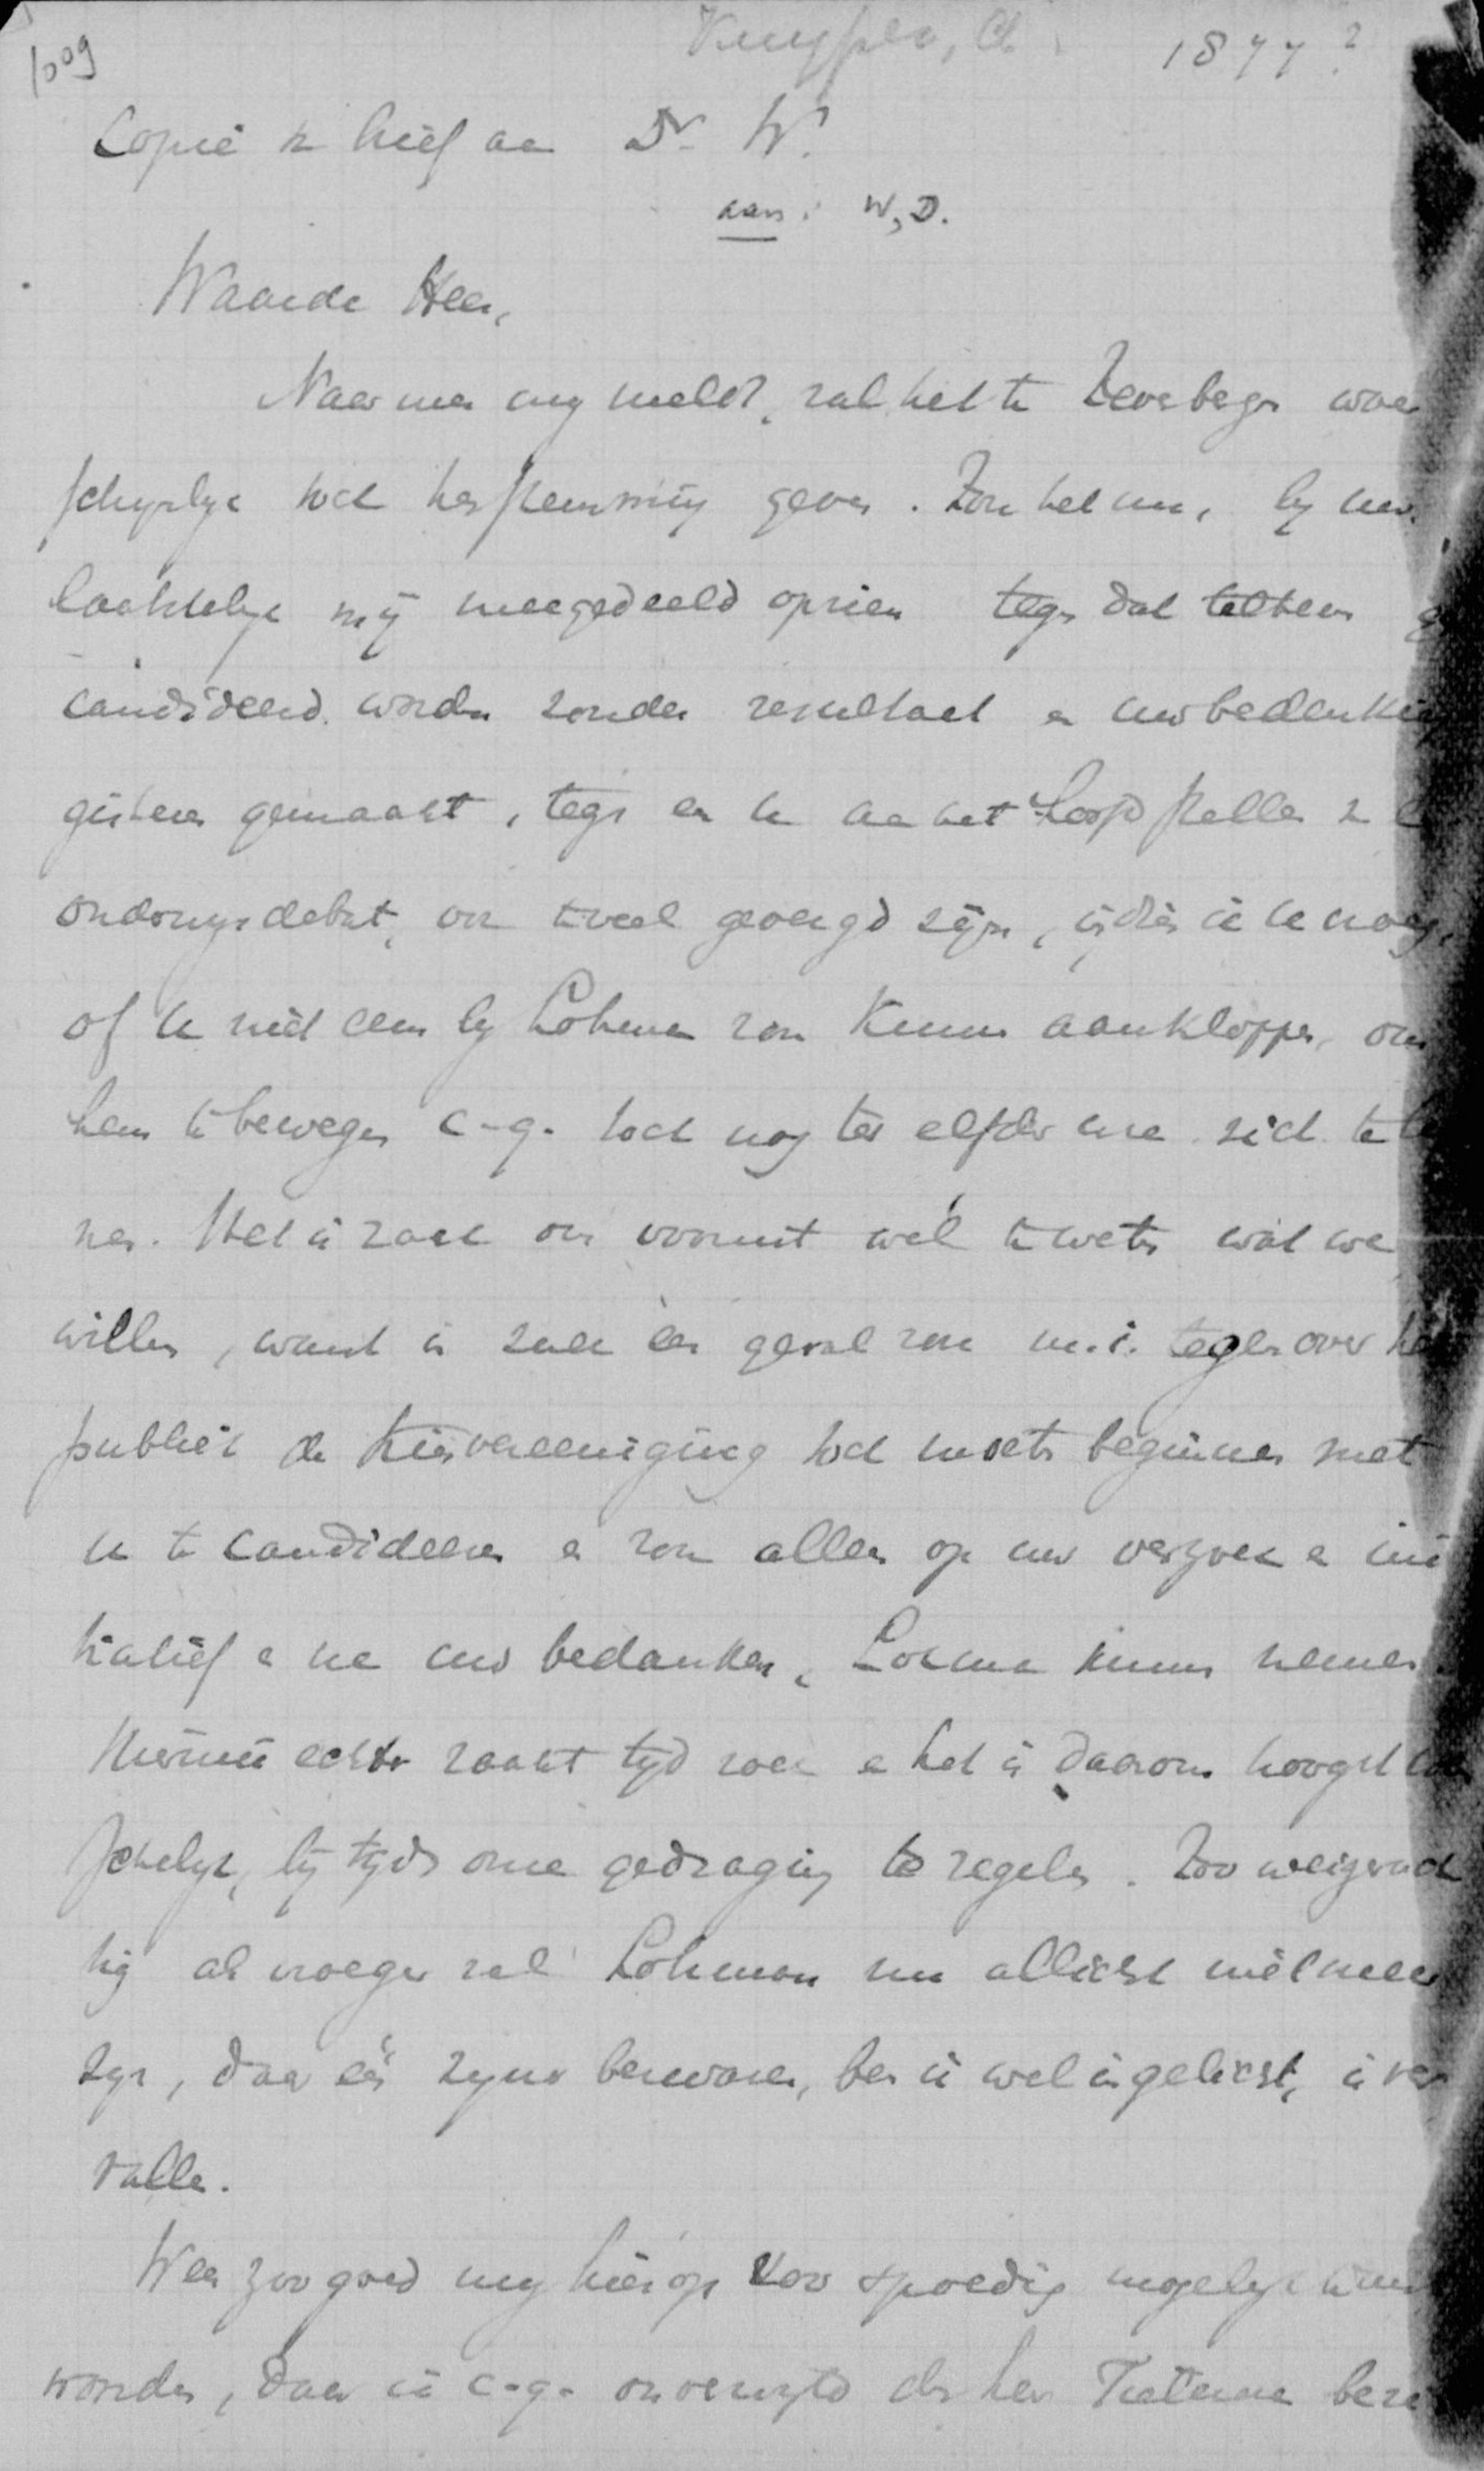 1009
Kuyper, A. 1877?
Copie v brief aan Dr W.
aan: W, D.
Waarde Heer,
Naar men my meldt, zal het te Zevenbergen waar
schynlyk tot herstemming geven. Zou het nu, by uw
laatstelyk mij meegedeeld opzien tegen dat telkens ge
candideerd worden zonder resultaat en uw bedenking
gisteren gemaakt, tegen en u aan het hoofd stellen v
onderwysdebat, on te veel gevergd zijn, indien ik u vroeg,
of u niet eens by Lohman zou kunnen aankloppen, om
hem te bewegen c.q. toch nog ter elfder ure zich te
nen. Het is zaak om vooruit wél te weten wat we
willen, want in zulk een geval zou m.i. tegenover het
publiek de Kiesvereeniging toch moeten beginnen met
u te candideeren en zou alleen op uw verzoek en ini
tiatief en na uw bedanken, Lohman kunnen nemen.
Hiermeê echter raakt tyd zoek en het is daarom hoogst
schelyk, bij tyds onze gedraging te regelen. Zoo weigerach
tig als vroeger zal Lohman nu allicht niet meer
zyn, daar één zyner bezwaren, ben ik wel ingelicht, is ver
vallen.
Wees zoo goed my hierop zoo spoedig mogelyk te ant
woorden, daar ik c.q. onverwyld den heer Tietema